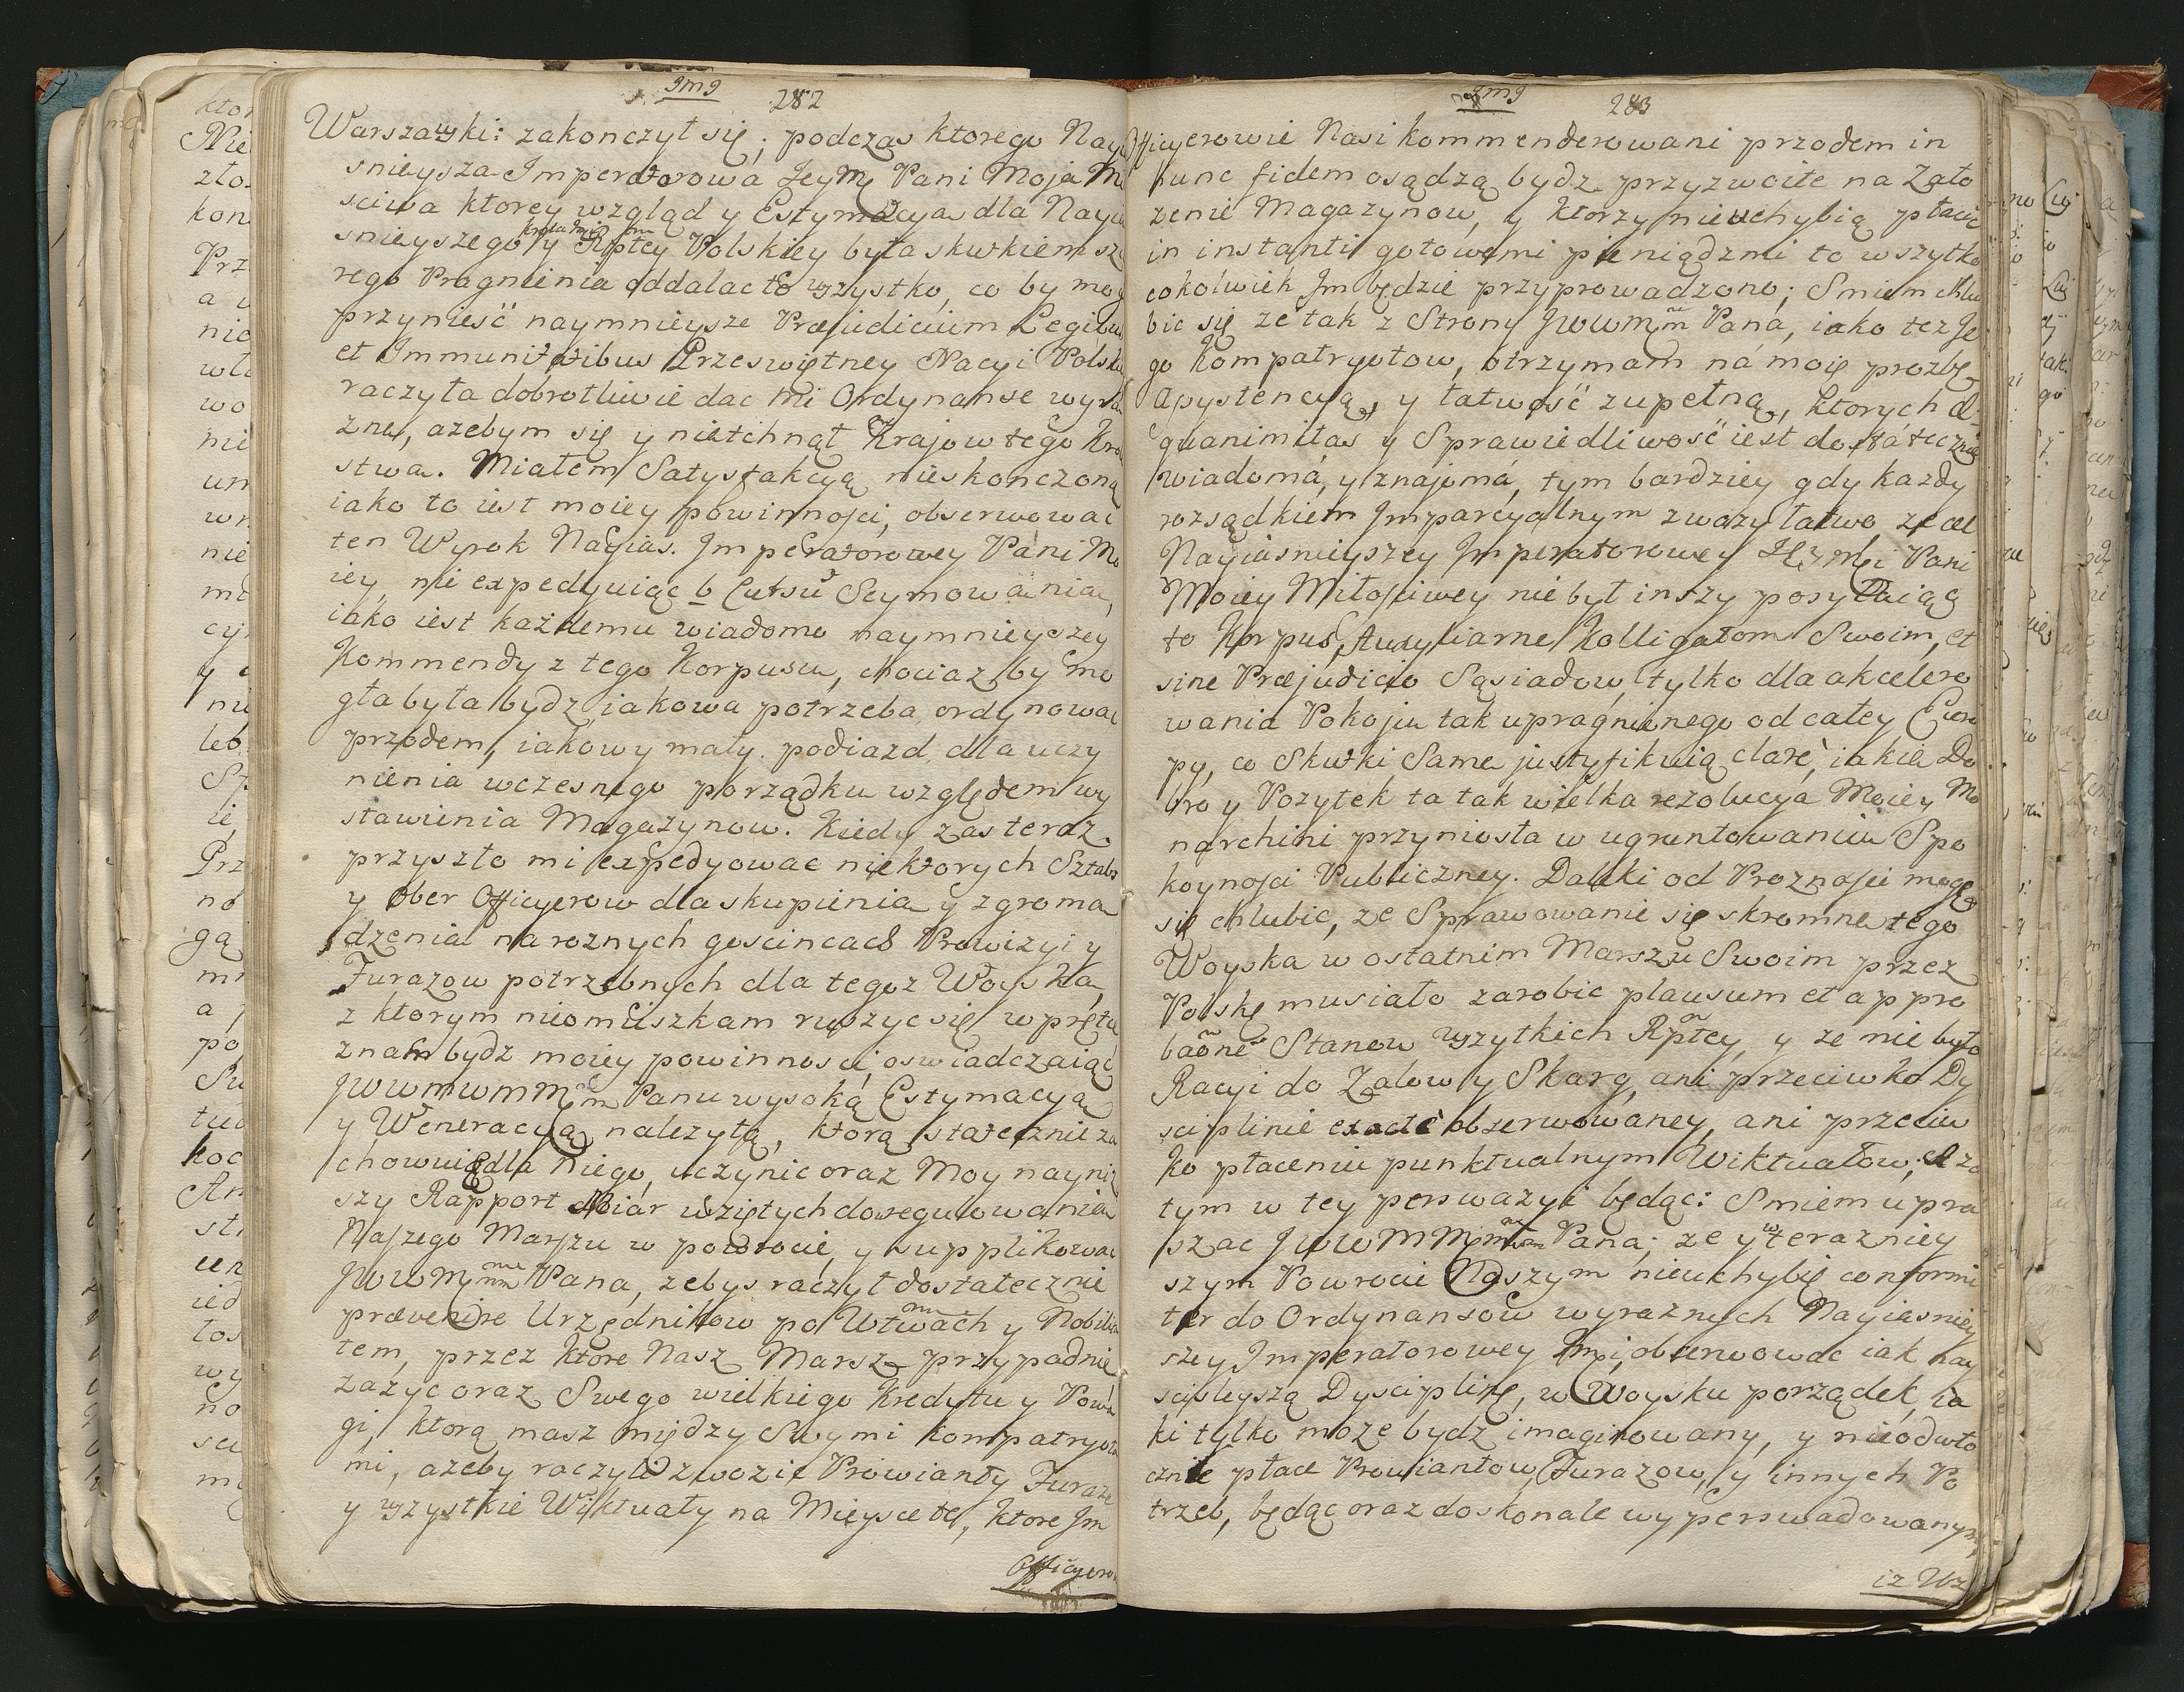 282
Warszawski: zakonczył się; podczas ktorego Nay
snieysza Imperatorowa Jeymę Pani Moja Mi
sciwa ktorey wzgląd y Estymacya dla Nayia
snieyszego y Rptey Polskiey była skutkiem szc
rego Pragnienia oddalac to wszystko, co by mog
przynieść naymnieysze Præiudicium Legibus
et Immunitatibus Przeswiętney Nacyi Polski
raczyła dobrotliwie dac mi Ordynanse wyra
zne, azebym się y nietchnął Krajow tego Kro
stwa. Miałem Satysfakcyą nieskonczoną
iako to iest moiey powinnosci, obserwowac
ten Wyrok Nayias. Imperatorowey Pani Mo
iey, nie expedyuiąc b Cursu Seymowania,
iako iest każdemu wiadomo naymnieyszey
Kommendy z tego Korpusu, chociaz by mo
gła była bydz iakowa potrzeba ordynowac
przodem, iakowy mały podiazd, dla uczy
nienia wczesnego porządku względem wy
stawienia Magazynow. Kiedy zas teraz
przyszło mi expedyowac niektorych Sztabs
y Ober Officyerow dla skupienia y zgroma
dzenia na roznych goscincach Prowizyi y
Furazow potrzebnych dla tegoz Woyska,
z ktorym nieomieszkam ruszyc się w prętce
znam bydz moiey powinnosci, oswiadczaiąc
JWWMWMM Panu wysoką Estymacyą
y Weneracyą nalezytą, ktorą statecznie za
chowuię dla Niego, uczynic oraz Moy nayni
szy Rapport Miar wziętych do regulowania
Naszego Marszu w powrocie, y supplikowac
JWWM Pana, zebys raczył dostatecznie
prævenire Urzędnikow po Wtwach y Nobilita
tem, przez ktore Nasz Marsz przypadnie
zazyc oraz Swego wielkiego Kredytu y Powa
gi, ktorą masz między Swymi kompatryota
mi, azeby raczyli zwozic Prowianty Furaze
y wszystkie Wiktuały na Mieysce te, ktore Im
Officyero
283
Officyerowie Nasi kommenderowani przodem in
hunc fidem osądzą bydz przyzwoite na Zało
zenie Magazynow, y ktorzy nieuchybią płacic
in instanti gotowemi pieniądzmi to wszytko
cokolwiek Im będzie przyprowadzono; Smiem chlu
bic się ze tak z Strony JWWM Pana, iako tez Je
go Kompatryotow, otrzymam na moię prozbę
Asystencyą, y łatwość zupełną, ktorych æ
quanimitas y Sprawiedliwość iest dostatecznie
wiadomá, y znajomá, tym bardziey gdy kazdy
rozsądkiem Imparcyalnym zwazy łatwo ze cel
Nayiasnieyszey Imperatorowey Pani
Moiey Miłosciwey nie był inszy posyłaiąc
to Korpus Auxyliarne Kolligatom Swoim, et
sine Præjudicio Sąsiadow, tylko dla akcelero
wania Pokoju tak upragnionego od całey Euro
py, co Skutki Same justyfikuią clarè, iakie Do
bro y Pozytek ta tak wielka rezolucya Moiey Mo
narchini przyniosła w ugruntowaniu Spo
koynosci Publiczney. Daleki od Proznosci mogę
się chlubic, ze Sprawowanie się skromne tego
Woyska w ostatnim Marszu Swoim przez
Polskę musiało zarobic plausum et appro
baõne Stanow wszytkich Rptey, y ze nie było
Racyi do Zalow y Skarg, ani przeciwko Dy
sciplinie exactè obserwowaney, ani przeciw
ko płaceniu punktualnym Wiktuałow; A za
tym w tey perswazyi będąc: Smiem upra
szac JWWMM Pana; ze y w terazniey
szym Powrocie Naszym nieuchybię conformi
ter do Ordynansow wyraznych Nayiasniey
szey Imperatorowey obserwowac iak nay
scisleyszą Dyscyplinę, w Woysku porządek, ia
ki tylko moze bydz imaginowany, y nieodwło
cznie płace Prowiantow Furazow, y innych Po
trzeb, będąc oraz doskonale wyperswadowanym,
iz Wz